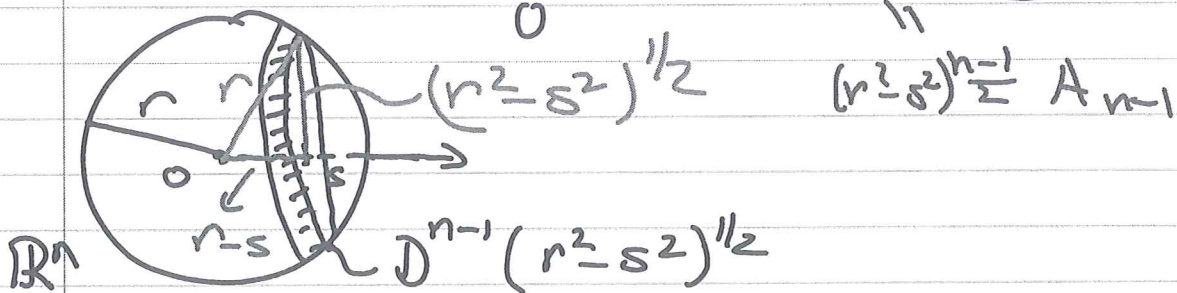 0 11
r r (r²-s²)^{1/2} (r²-s²)^{\frac{n-1}{2}} A_{n-1}
0 s
r-s
ℝⁿ D^{n-1} (r²-s²)^{1/2}